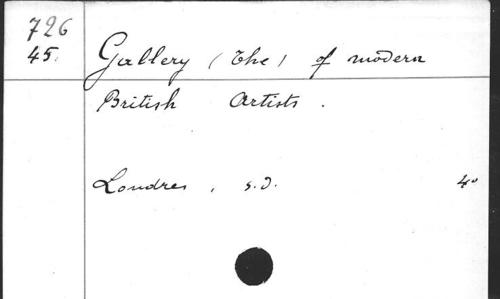 726
45.
Gallery (The) of modern
British Artists.
Londres, s.d. 4°